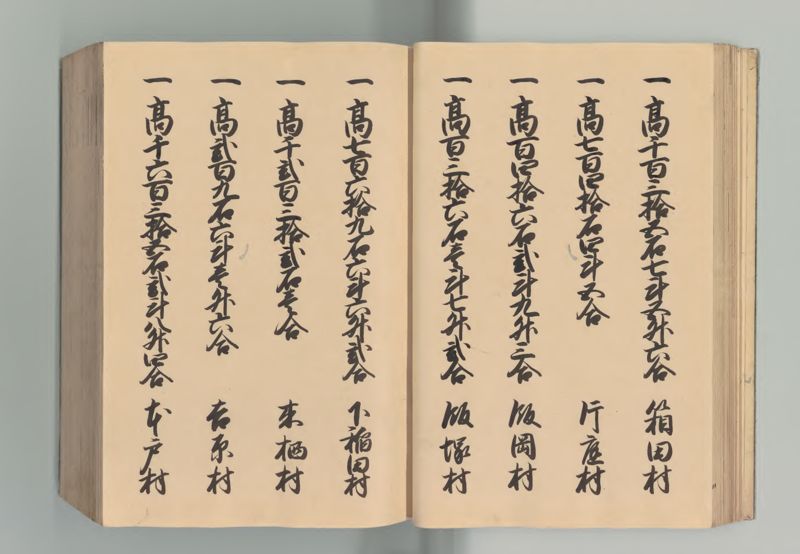 一 高千百三拾五石七斗五升六合 箱田村
一 高七百四拾石四斗五合 片庭村
一 高百四拾六石弐斗九升三合 飯岡村
一 高百三拾六石壱斗七升弐合 飯塚村
一 高七百六拾九石六斗六升弐合 下稲田村
一 高千弐百三拾弐石壱合 来栖村
一 高弐百九石六斗壱升六合 吉原村
一 高千六百三拾五石弐斗八升四合 本戸村